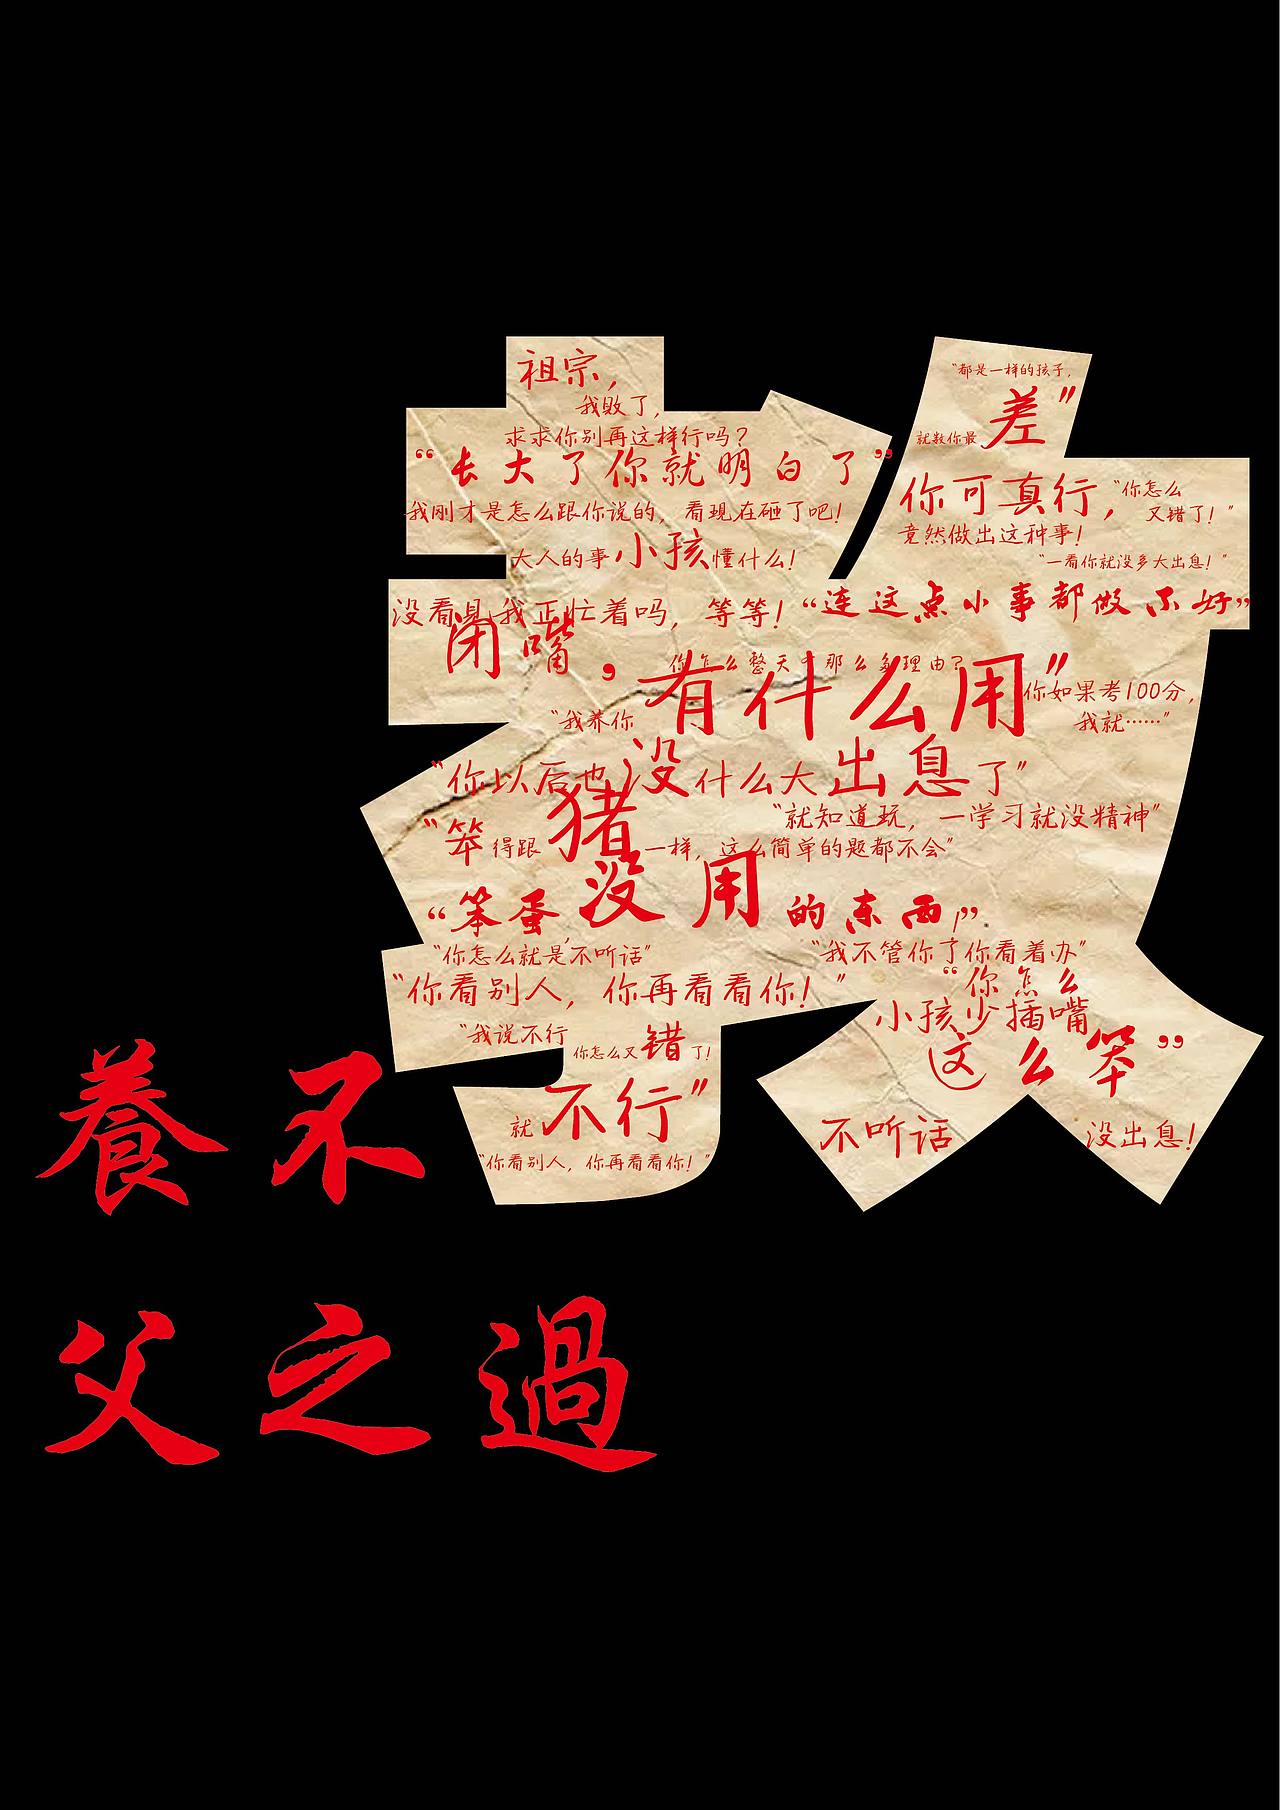 祖宗，
我败了，
求求你别再这样行吗？
“长大了你就明白了”
我刚才是怎么跟你说的，看现在砸了吧！
大人的事小孩懂什么！
“都是一样的孩子，
就数你最差”
你可真行，
竟然做出这种事！
“你怎么
又错了！”
“一看你就没多大出息！”
没看见我正忙着吗，等等！
“连这点小事都做不好”
闭嘴，
你怎么整天那么多理由？
“我养你有什么用”
你如果考100分，
我就……”
“你以后也没什么大出息了”
“就知道玩，一学习就没精神”
“笨得跟猪一样，这么简单的题都不会”
“笨蛋，没用的东西！”
“你怎么就是不听话”
“我不管你了你看着办”
“你看别人，你再看看你！”
“你怎么
这么笨”
小孩少插嘴
“我说不行
就不行”
你怎么又错了！
不听话
没出息！
“你看别人，你再看看你！”
養不教
父之過